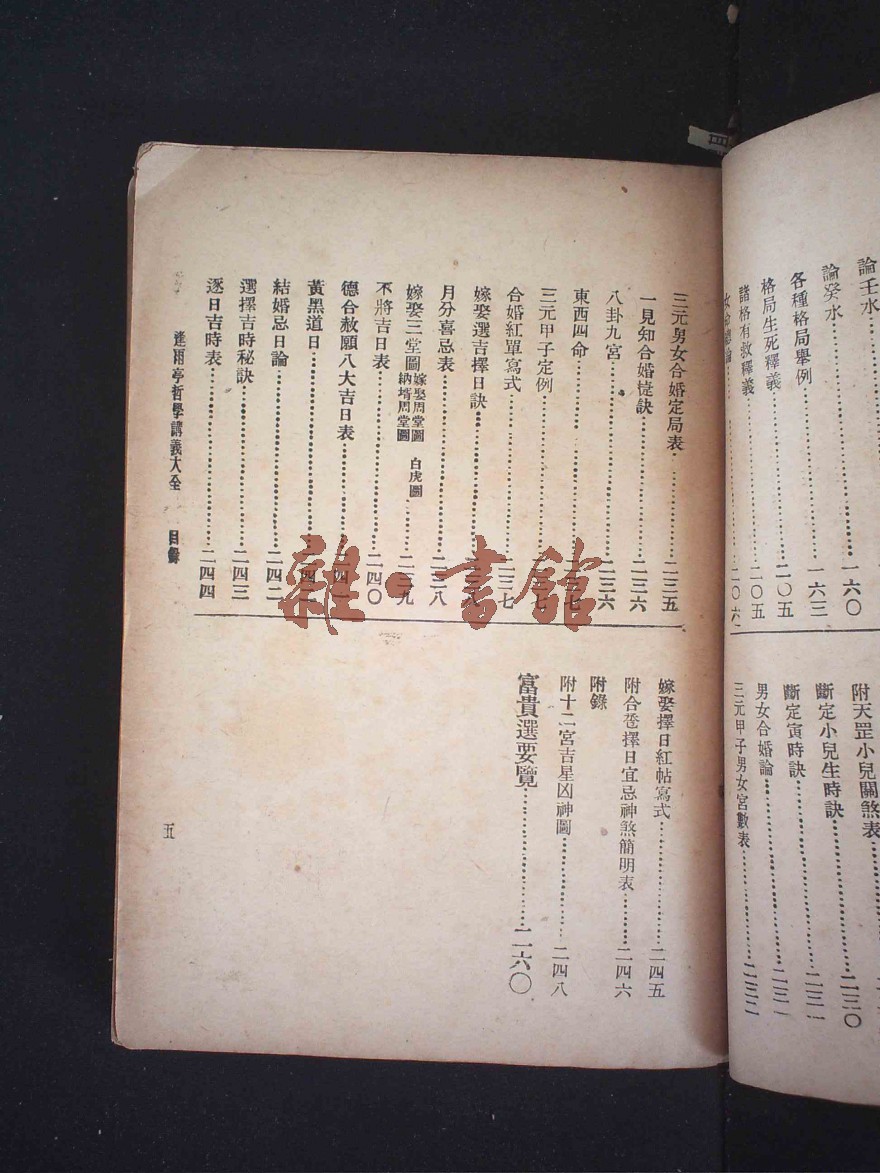 論壬水
論癸水……一六〇
各種格局舉例……一六三
格局生死釋義……二〇五
諸格有救釋義……二〇五
女命總論……二〇六
附天罡小兒關煞表
斷定小兒生時訣……二三〇
斷定寅時訣……二三一
男女合婚論……二三一
三元甲子男女宮數表……二三二
三元男女合婚定局表……二三五
一見知合婚㨗訣……二三六
八卦九宮……二三六
東西四命……二三七
三元甲子定例……二三七
合婚紅單寫式……二三七
嫁娶選吉擇日訣……二三八
月分喜忌表……二三八
嫁娶三堂圖 嫁娶周堂圖 納壻周堂圖 白虎圖……二三九
不將吉日表……二四〇
德合赦願八大吉日表……二四一
黃黑道日……二四
結婚忌日論……二四二
選擇吉時秘訣……二四三
逐日吉時表……二四四
嫁娶擇日紅帖寫式……二四五
附合巹擇日宜忌神煞簡明表……二四六
附錄
附十二宮吉星凶神圖……二四八
富貴選要覽……二六〇
逢雨亭哲學講義大全 目錄
五
雜·書館